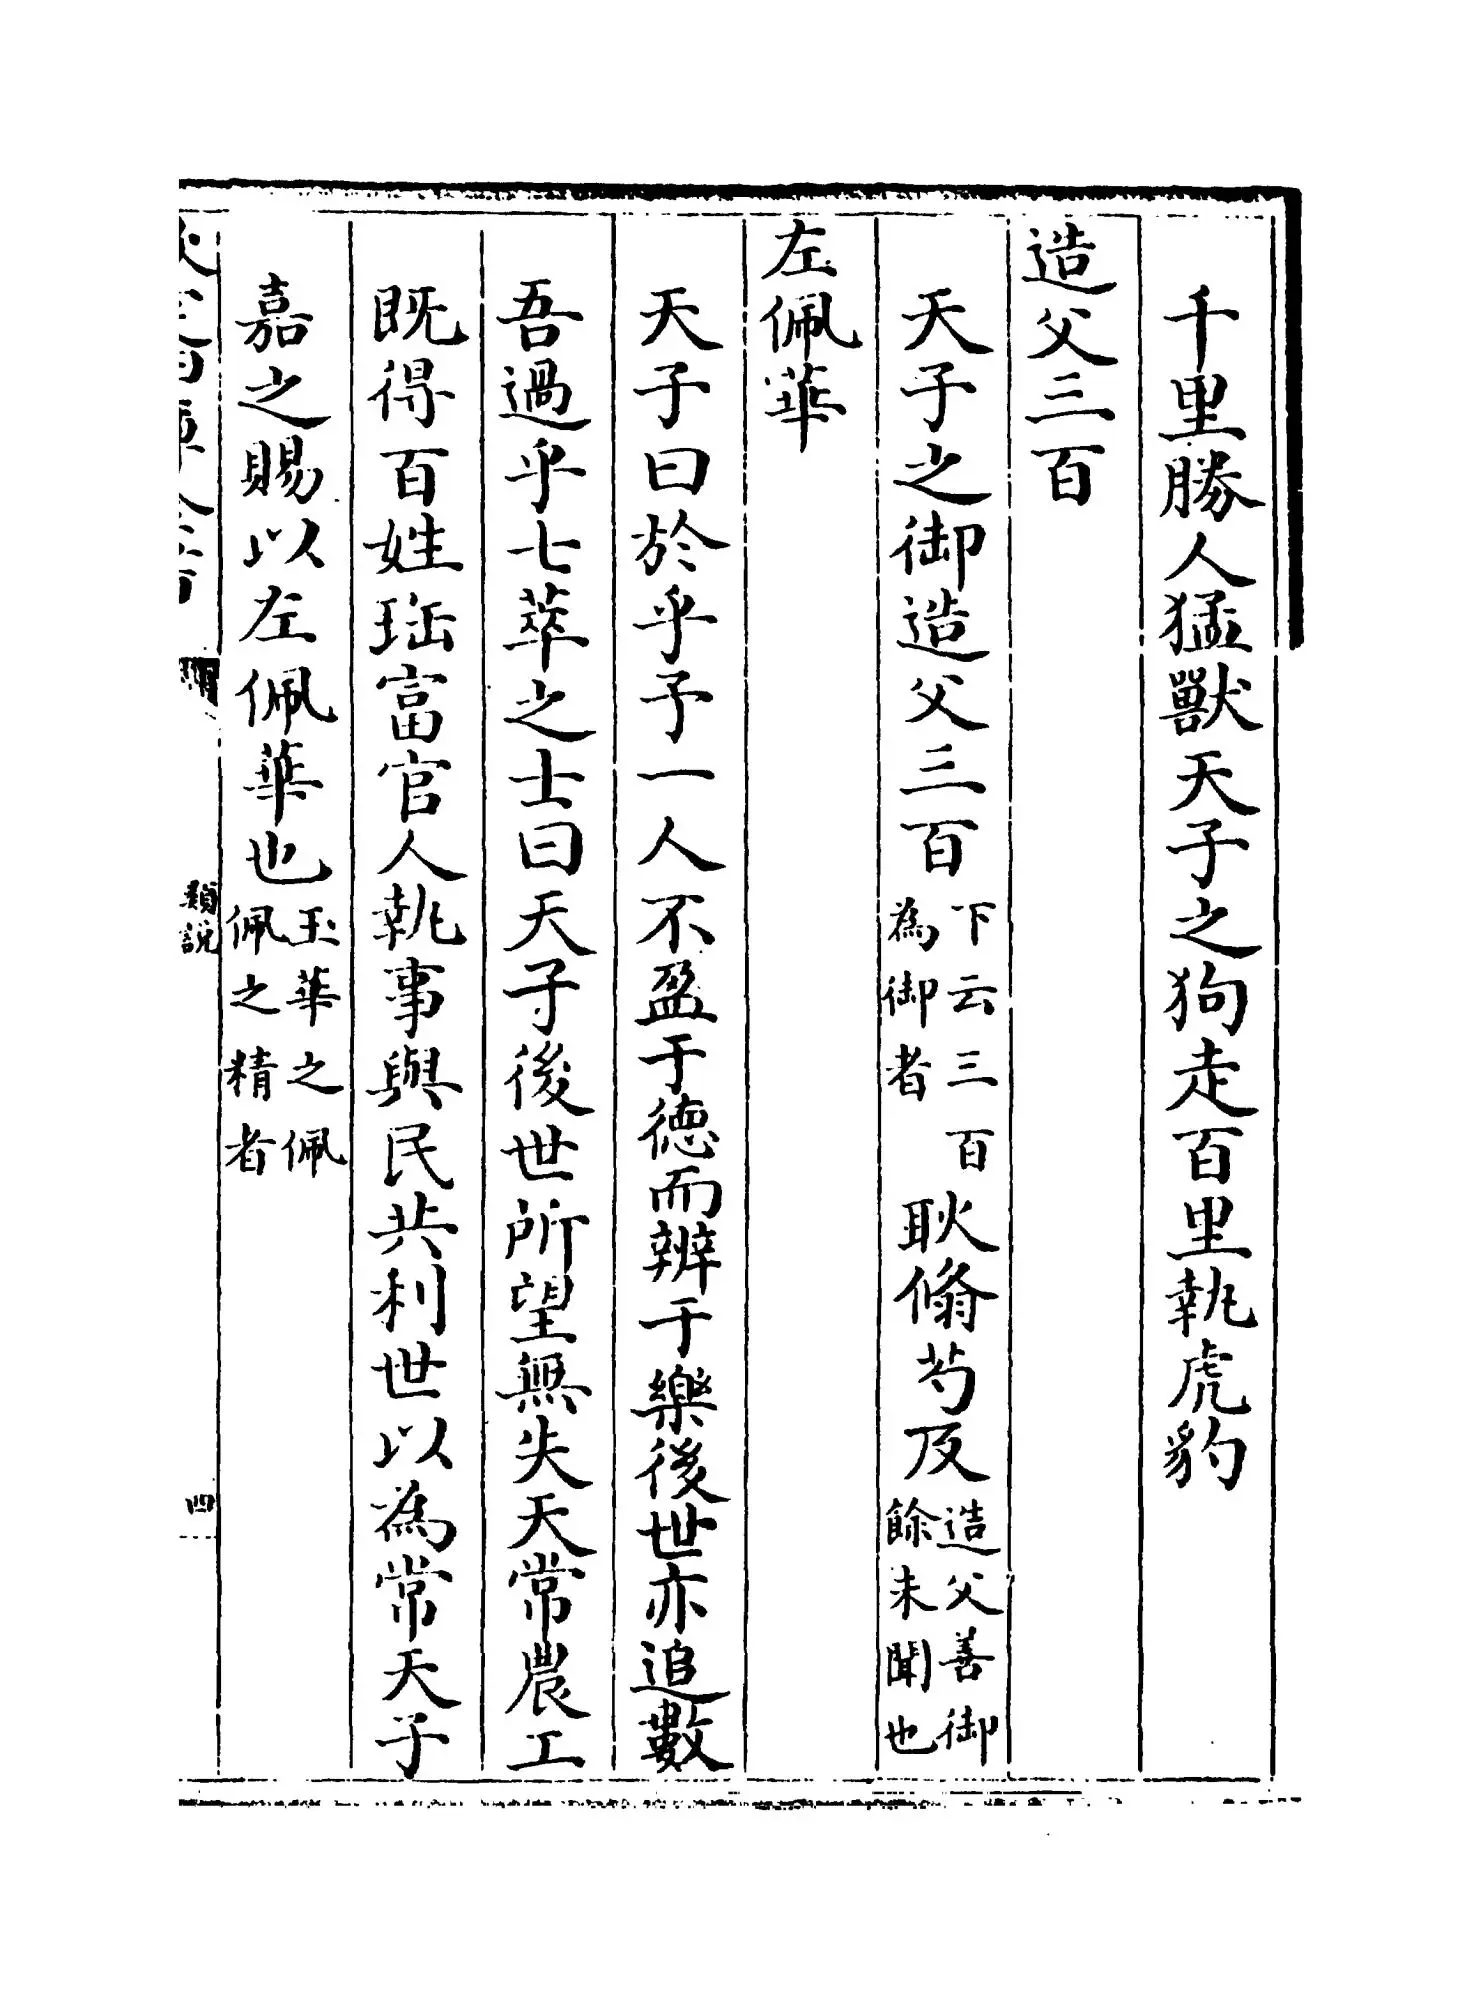 千里勝人猛獸天子之狗走百里執虎豹
造父三百
天子之御造父三百下云三百為御者耿翛芍及造父善御餘未聞也
左佩華
天子曰於乎予一人不盈于德而辨于樂後世亦追數
吾過乎七萃之士曰天子後世所望無失天常農工
既得百姓珤富官人執事與民共利世以為常天子
嘉之賜以左佩華也玉華之佩佩之精者
類說
四